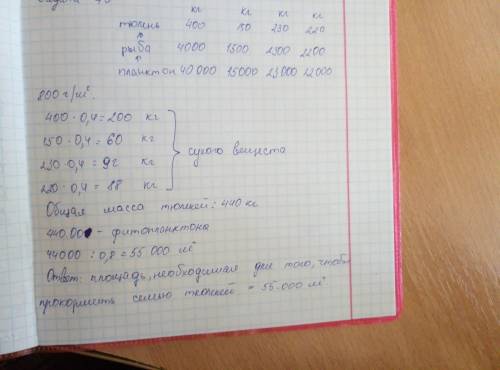 кг кг кг кг
тюлень 400 150 230 220
↑
рыба 4000 1500 2300 2200
↑
планктон 40000 15000 23000 22000
800 г/м².
400 · 0,4 = 200 кг
150 · 0,4 = 60 кг
230 · 0,4 = 92 кг
220 · 0,4 = 88 кг
сухого вещества
Общая масса тюлней: 440 кг
фитопланктона
44000 : 0,8 = 55 000 м²
Ответ: площадь, необходимая для того, чтобы
прокормить семью тюленей = 55.000 м²